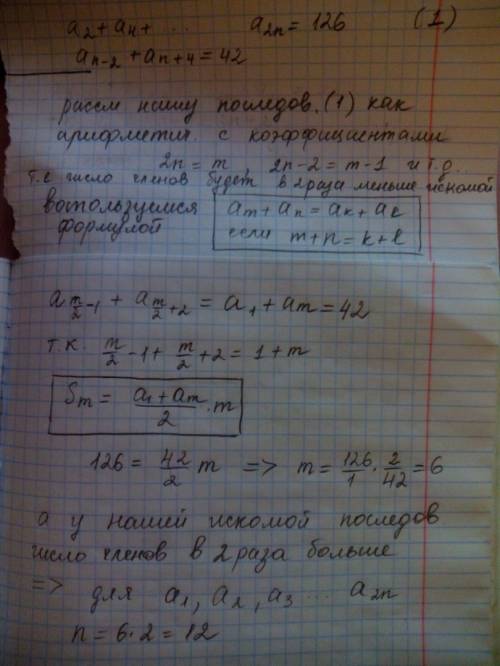 a₂ + a₄ + ... a₂ₙ = 126 (1)
aₙ₋₂ + aₙ₊₄ = 42
рассм нашу последов. (1) как
арифметич. с коэффициентами
2n = m, 2n-2 = m-1 и т.д..
т.е число членов будет в 2 раза меньше искомой
воспользуемся
формулой
aₘ + aₙ = aₖ + aₗ
если m+n = k+l
a_{m/2 -1} + a_{m/2 +2} = a₁ + aₘ = 42
т.к. m/2 -1 + m/2 +2 = 1 + m
Sₘ = (a₁ + aₘ)/2 · m
126 = 42/2 m => m = 126/1 · 2/42 = 6
а у нашей искомой последов
число членов в 2 раза больше
=> для a₁, a₂, a₃ ... a₂ₙ
n = 6·2 = 12